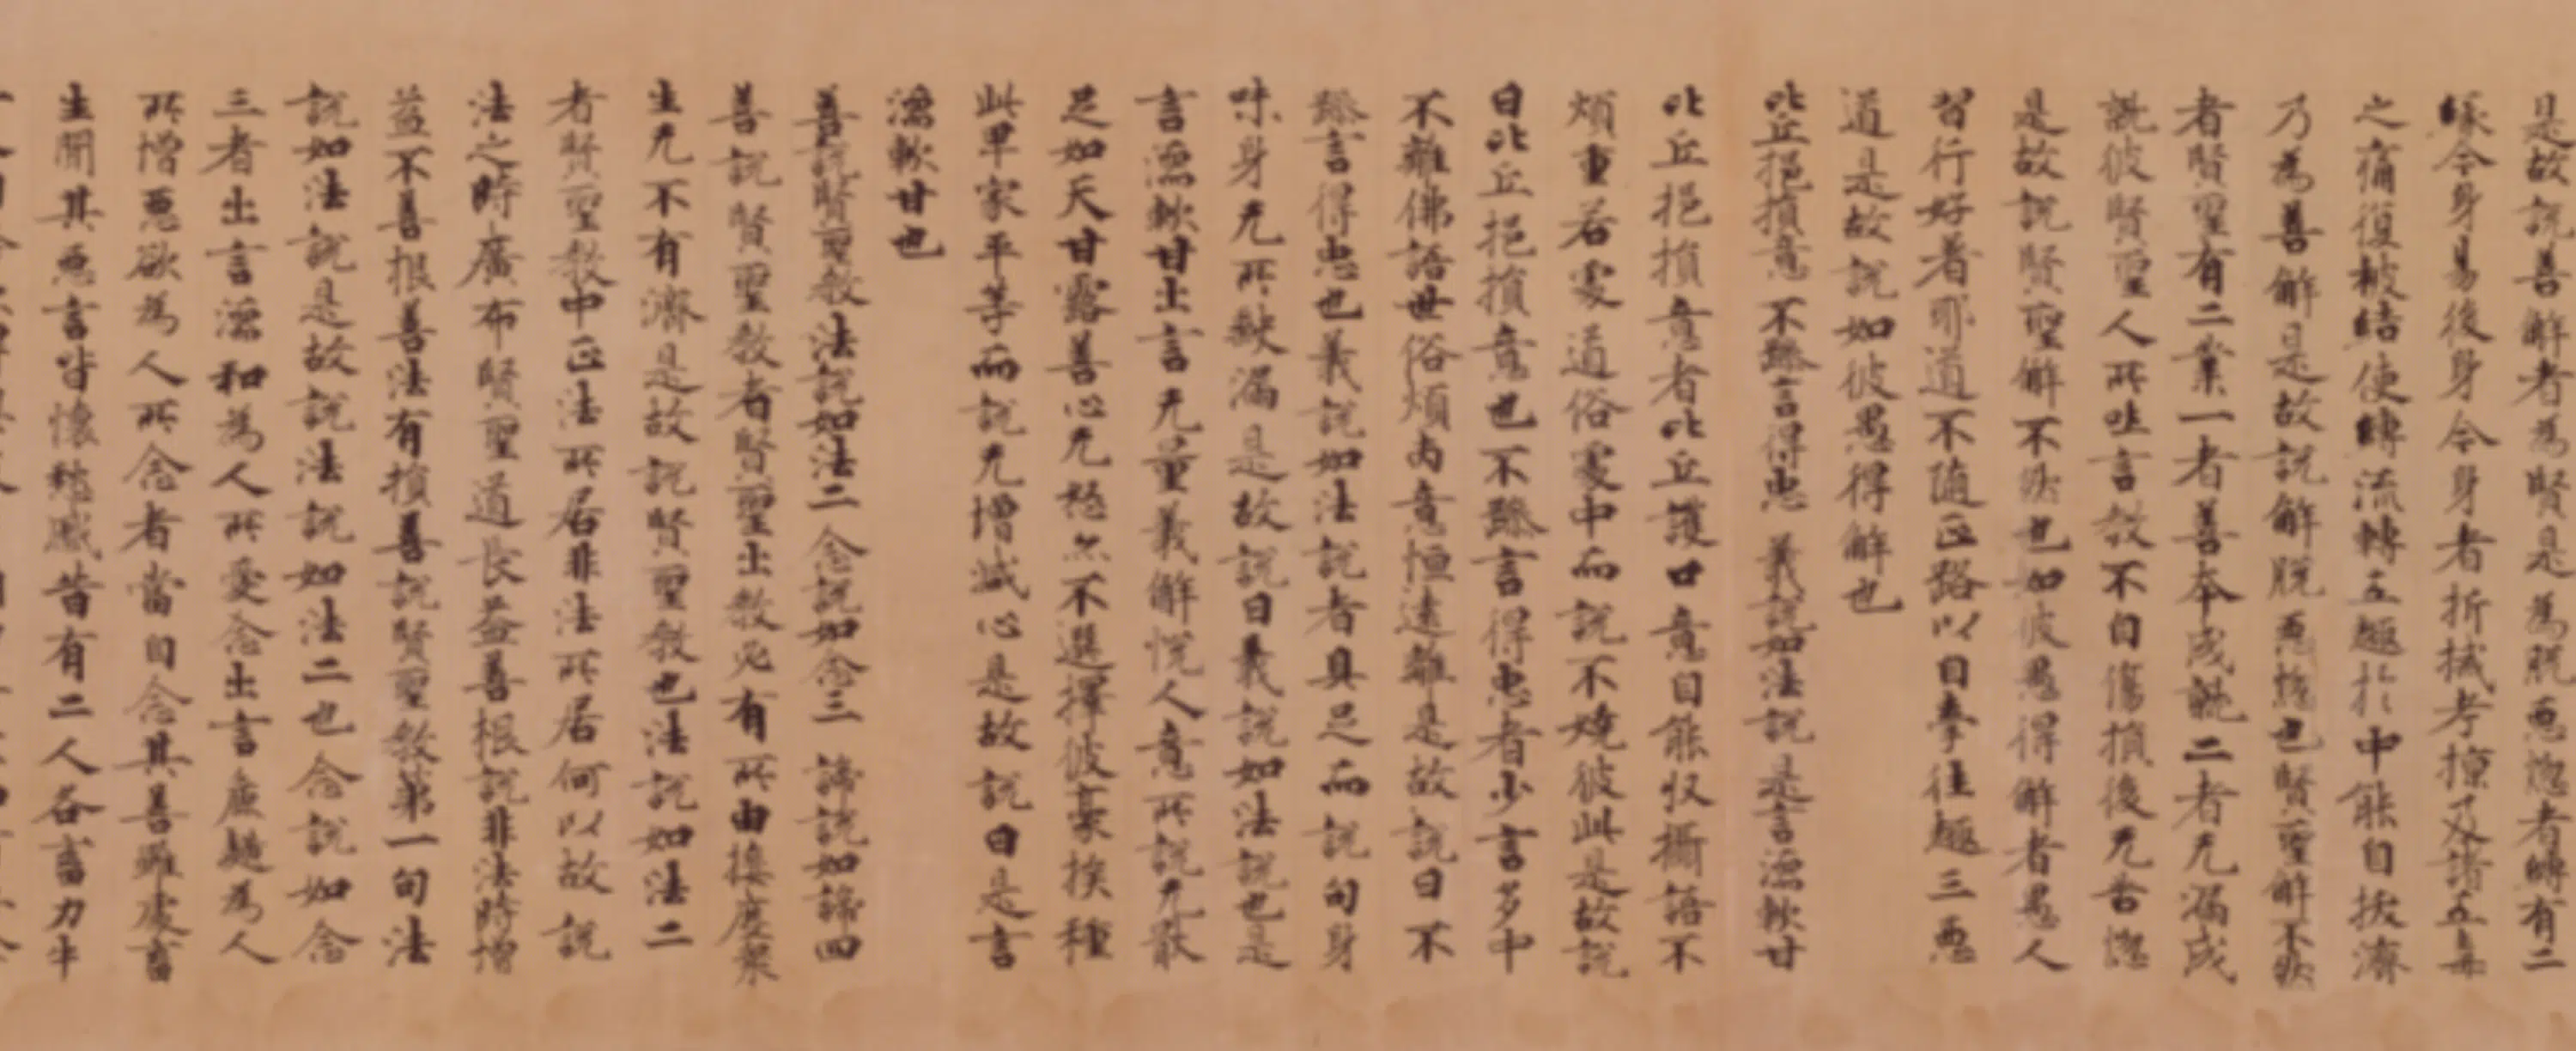 是故說善解者為賢是為脫惡惚者縛有二
緣今身易後身今身者折挍考掠又諸五毒
之痛復被結使縛流轉五趣於中能自拔濟
乃為善解是故說解脫惡惚也賢聖解不然
者賢聖有二業一者善本成就二者无漏成
說彼賢聖人所吐言教不自傷損後无舍惚
是故說賢聖解不然也如彼愚得解者愚人
習行好著邪道不隨正路以日奉往趣三惡
道是故說如彼愚得解也
比丘挹損意不躁言得忠義說如法說是言濡軟甘
比丘挹損意者比丘護口意自能收攝語不
煩重若處道俗眾中而說不嬈彼此是故說
曰比丘挹損意也不躁言得忠者少言多中
不離佛語世俗煩內意恒遠離是故說曰不
躁言得忠也義說如法說者具足而說句身
味身无所缺漏是故說曰義說如法說也是
言濡軟甘出言无量義解悅人意所說无厭
足如天甘露善心无極亦不選擇彼豪族種
此卑家平等而說无增減心是故說曰是言
濡軟甘也
善說賢聖教法說如法二念說如念三諦說如諦四
善說賢聖教者賢聖出教必有所由接度眾
生无不有濟是故說賢聖教也法說如法二
者賢聖教中正法所居非法所居何以故說
法之時廣布賢聖道長益善根說非法時增
益不善根善法有損善說賢聖教第一句法
說如法說是故說法說如法二也念說如念
三者出言濡和為人所愛念出言麁麤為人
所憎惡欲為人所念者當自念其善雖處畜
生聞其惡言皆懷愁慼昔有二人各畜力牛